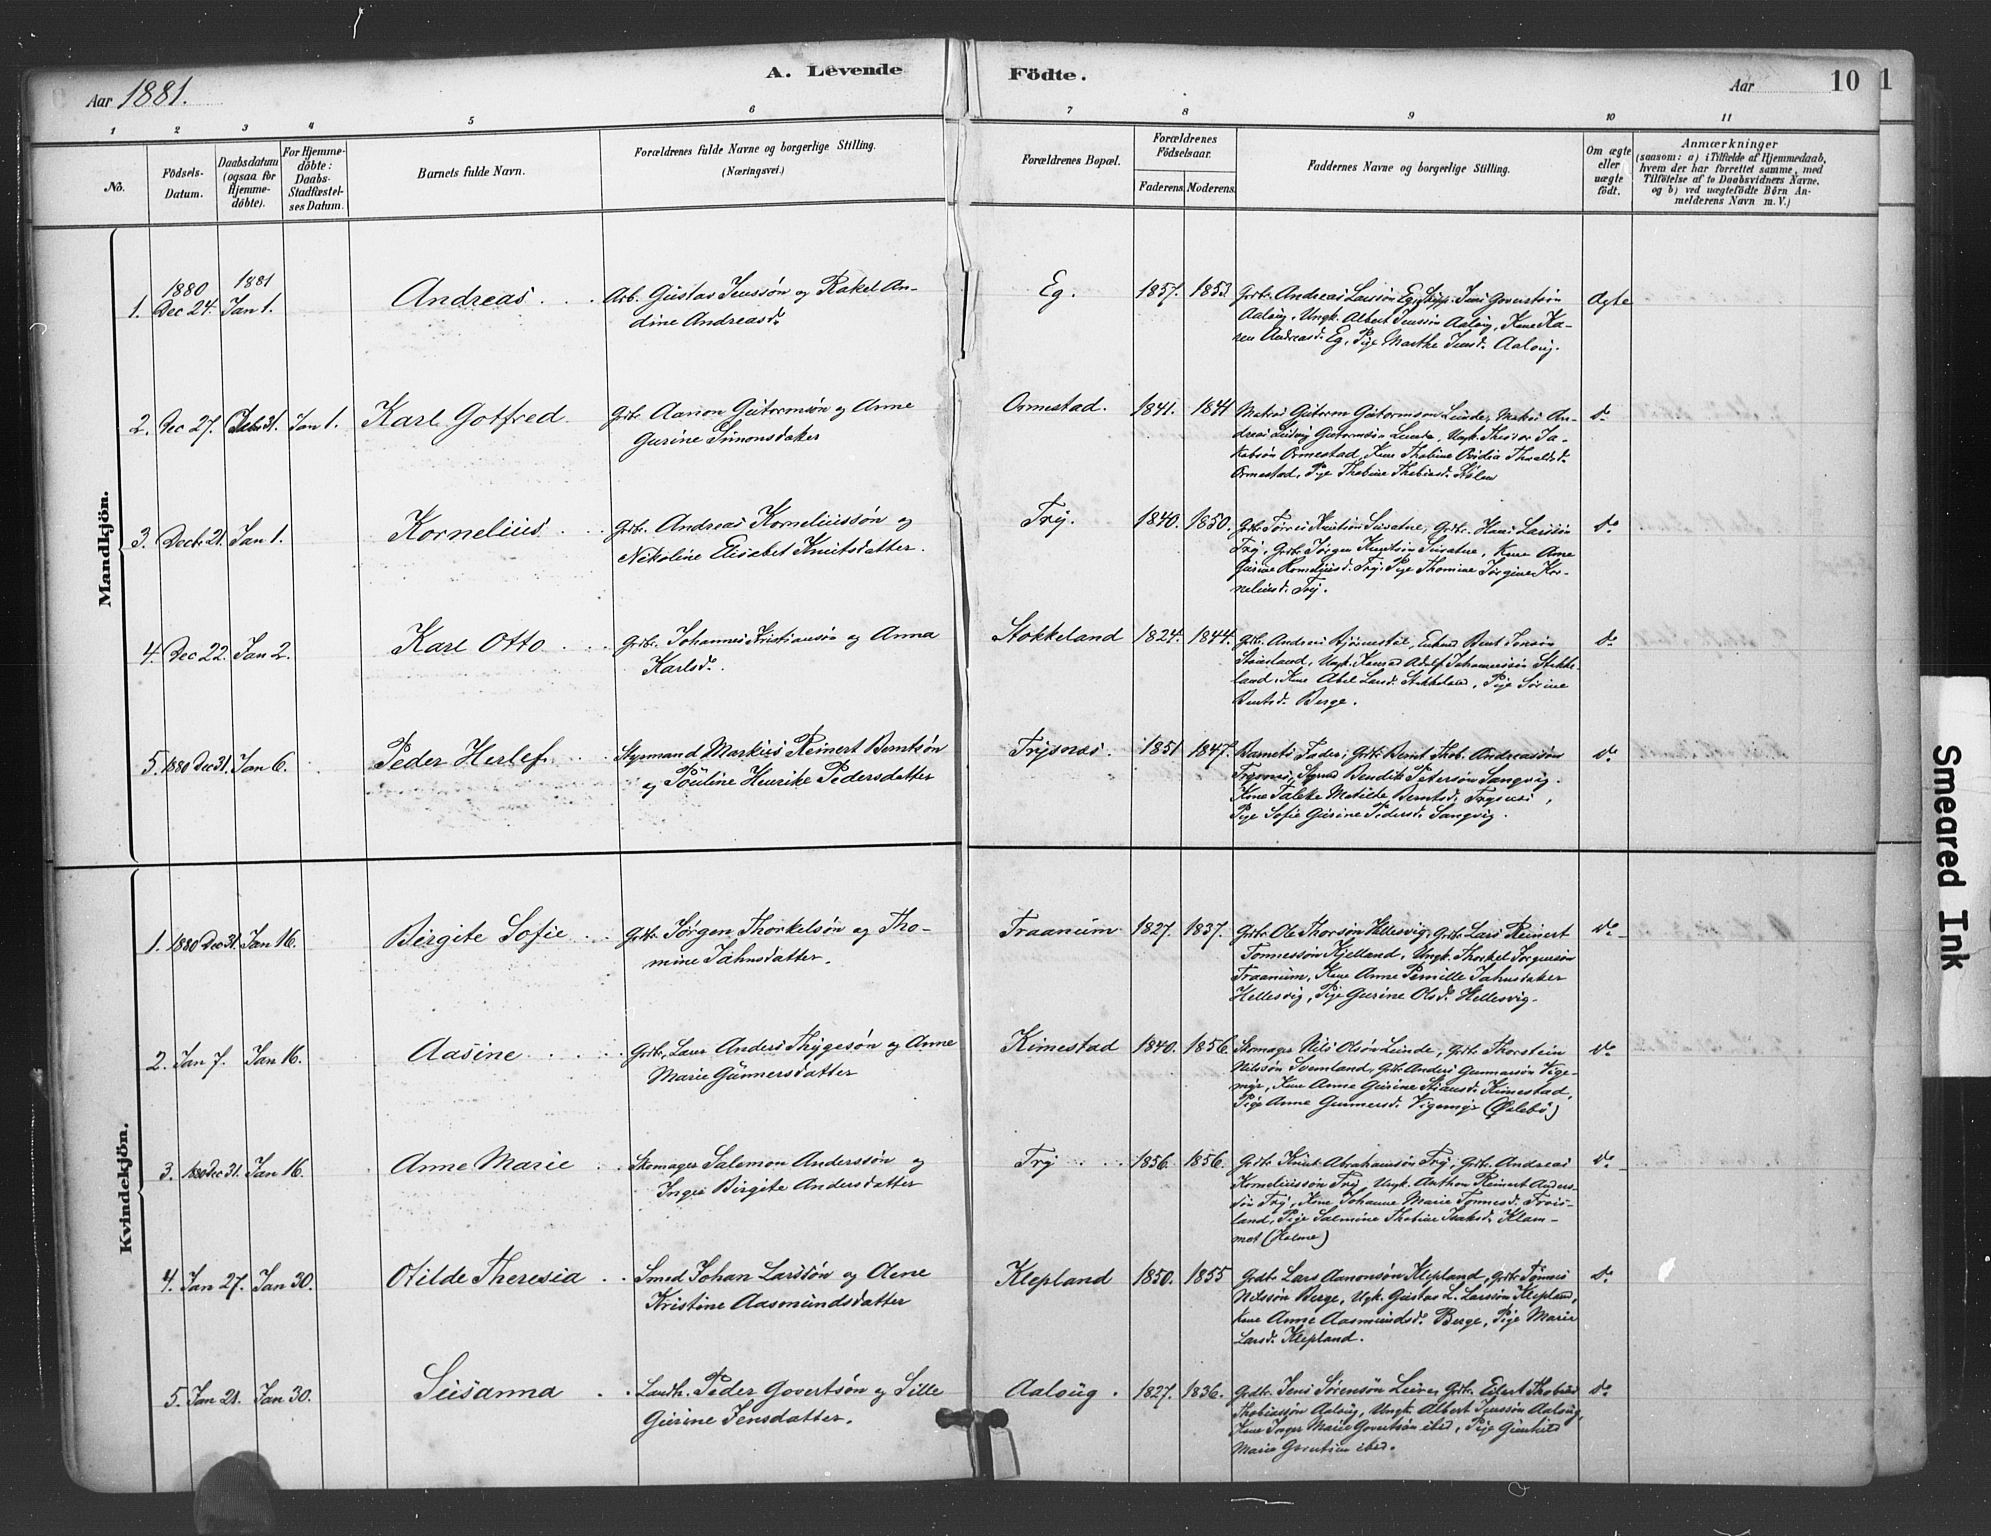 Aar 1881.
A. Levende
Födte.
Aar
10
1
1
2
3
4
5
6
7
8
9
10
11
No.
Födsels-
Datum.
Daabsdatum
(ogsaa for
Hjemme-
döbte).
For Hjemme-
döbte:
Daabs-
Stadfæstel-
ses Datum.
Barnets fulde Navn.
Forældrenes fulde Navne og borgerlige Stilling.
(Næringsvei.)
Forældrenes Bopæl.
Forældrenes
Födselsaar.
Faderens.
Moderens.
Faddernes Navne og borgerlige Stilling.
Om ægte
eller
uægte
födt.
Anmærkninger
(saasom: a) i Tilfælde af Hjemmedaab,
hvem der har forrettet samme, med
Tilföielse af to Daabsvidners Navne,
og b) ved uægtefödte Börn An-
melderens Navn m. V.)
Mandkjön.
1880 1881
1. Dec 24. Jan 1. Andreas Arb. Gustav Jenssøn og Rakel An-
dine Andreasd.
Eg. 1857. 1853 Grdbr. Andreas Larssøn Eg, Skipp. Jens Govertsøn
Aaloug, Ungk. Albert Jenssøn Aaloug, Kone Ka-
ren Andreasd. Eg, Pige Marthe Jensd. Aaloug.
Ægte
2. Dec 27. Decbr 31. Jan 1. Karl Gotfred Grdbr. Aanon Gutormsøn og Anne
Gurine Simonsdatter
Ormestad. 1841. 1841 Matros Guttorm Gutormsøn Lunde, Matros An-
dreas Ludvig Gutormsøn Lunde, Ungk. Ja-
kobsøn Ormestad, Kone Thobine Ovidia
Ormestad, Pige Thobine Thobiasd.
do
3. Decb. 21. Jan 1. Kornelius Grdbr. Andreas Korneliussøn og
Nikoline Elisabet Knutsdatter.
Try. 1840. 1850. Grdbr. Kristian Grdbr. Hans Larssøn
Try, Grdbr. Jørgen Knutsøn Kone Ane
Gurine Korneliusd. Try, Pige Thomine Jørgine Kor-
neliusd. Try.
do
4. Dec 22. Jan 2. Karl Otto Grdbr. Johannes Kristiansøn og Anna
Karlsd.
Stokkeland 1824. 1844. Grdbr. Andreas Bent
Ungk. Konrad Adolf Johannessøn Stokke-
land, Kone Abel Larsd. Stokkeland, Pige Sørine
Berntsd. Berge.
do
5. 1880 Dec 31. Jan 6. Peder Herlef Styrmand Markus Reinert Berntsøn
og Pouline Henrike Pedersdatter
Trysnes. 1851 1847. Barnets Fader, Grdbr. Bernt Thob. Andreassøn
Trysnes, Bendik Petersøn Sangvig,
Kone Taleke Matilde Berntsd. Trysnes,
Pige Sofie Gurine Pedersd. Sangvig.
do
Kvindekjön.
1. 1880 Dec 31. Jan 16. Birgite Sofie Grdbr. Jørgen Thorkelsøn og Tho-
mine Jahnsdatter.
Traanum 1827. 1837. Grdbr. Ole Thorsøn Hellesvig, Grdbr. Lars Reinert
Tønnessøn Kjelland, Ungk. Thorkel Jørgensøn
Traanum, Kone Anne Pernille Jahnsdatter
Hellesvig, Pige Gurine Olsd. Hellesvig.
do
2. Jan 7. Jan 16. Aasine Grdbr. Anders Thygesøn og Anne
Marie Gunnersdatter
Kimestad 1840. 1856. Skomager Nils Olsøn Lunde, Grdbr. Thorstein
Nilssøn Svemland, Grdbr. Anders Gunnarsøn Vige-
myr, Kone Anne Gurine Kimestad,
Pige Anne Gunnersd. Vigemyr (Øvlebø)
do
3. 1880 Dec 31. Jan 16. Anne Marie Skomager Salemon Anderssøn og
Inger Birgite Andersdatter
Try 1856. 1856. Grdbr. Knut Abrahamsøn Try, Grdbr. Andreas
Korneliussøn Try, Ungk. Anthon Reinert Anders-
søn Try, Kone Johanne Marie Tønnesd. Frøis-
land, Pige Salmine Thobine Isaksd. Klam-
mot (Holme)
do
4. Jan 27. Jan 30. Otilde Theresia Smed Johan Larssøn og Olene
Kristine Aasmundsdatter
Klepland 1850. 1855 Grdbr. Lars Aanonsøn Klepland, Grdbr. Tønnes
Nilssøn Berge, Ungk. Gustav L. Larssøn Klepland,
Kone Anne Aasmundsd. Berge, Pige Marie
Larsd. Klepland.
do
5. Jan 21. Jan 30. Susanna Landh. Peder Govertsøn og Sille
Gurine Jensdatter.
Aaloug. 1827. 1836. Grdbr. Jens Sørensøn Grdbr. Eilert Thobias
Thobiassøn Aaloug, Ungk. Albert Jenssøn Aaloug,
Kone Inger Marie Govertsøn ibid, Pige Gunhild
Marie Govertsøn ibid.
do
Smeared Ink